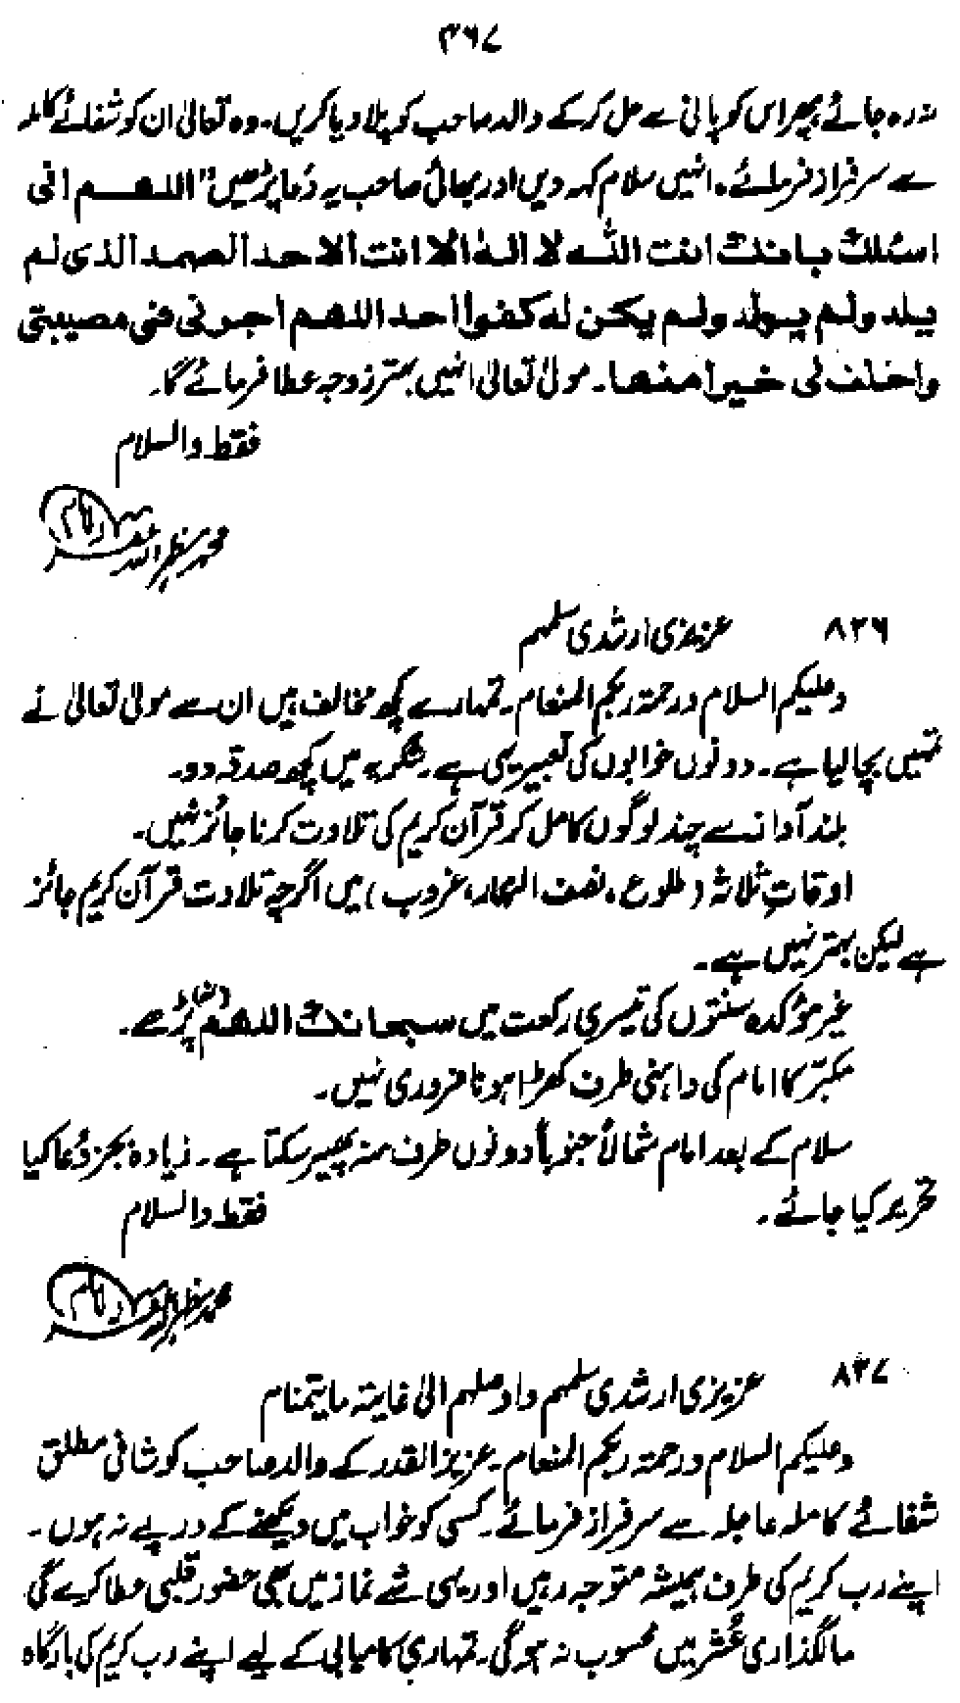 ۳۶۷
نہ رہ جائے پھر اس کو پانی سے حل کر کے والد صاحب کو پلا دیا کریں۔ وہ تعالیٰ ان کو شفائے کاملہ
سے سرفراز فرمائے، انہیں سلام کہہ دیں اور بھائی صاحب یہ دُعا پڑھیں "اللھم انی
اسئلک بانک انت اللہ لا الہ الا انت الاحد الصمد الذی لم
یلد ولم یولد ولم یکن لہ کفوا احد اللھم اجرنی فی مصیبتی
واخلف لی خیرا منھا۔ مولیٰ تعالیٰ انہیں بہتر زوجہ عطا فرمائے گا۔
فقط والسلام
محمد مظہر اللہ
۸۳۶ عزیزی ارشدی سلمہم
وعلیکم السلام ورحمۃ ربکم المنعام۔ تمہارے کچھ مخالف ہیں ان سے مولیٰ تعالیٰ نے
تمہیں بچا لیا ہے۔ دونوں خوابوں کی تعبیر یہی ہے۔ شکریہ میں کچھ صدقہ دو۔
بلند آواز سے چند لوگوں کا مل کر قرآن کریم کی تلاوت کرنا جائز نہیں۔
اوقاتِ ثلاثہ (طلوع، نصف النہار، غروب) میں اگرچہ تلاوت قرآن کریم جائز
ہے لیکن بہتر نہیں ہے۔
غیر مؤکدہ سنتوں کی تیسری رکعت میں سبحانک اللھم پڑھے۔
مکبّر کا امام کی داہنی طرف کھڑا ہونا ضروری نہیں۔
سلام کے بعد امام شمالاً جنوباً دونوں طرف منہ پھیر سکتا ہے۔ زیادہ بجز دُعا کیا
تحریر کیا جائے۔ فقط والسلام
محمد مظہر اللہ
۸۳۷ عزیزی ارشدی سلمہم واوصلہم الیٰ غایۃ مایتمنام
وعلیکم السلام ورحمۃ ربکم المنعام۔ عزیز القدر کے والد صاحب کو شافی مطلق
شفائے کاملہ عاجلہ سے سرفراز فرمائے۔ کسی کو خواب میں دیکھنے کے درپے نہ ہوں۔
اپنے رب کریم کی طرف ہمیشہ متوجہ رہیں اور یہی شے نماز میں بھی حضور قلبی عطا کرے گی
مالگذاری عُشر میں محسوب نہ ہوگی۔ تمہاری کامیابی کے لیے اپنے رب کریم کی بارگاہ